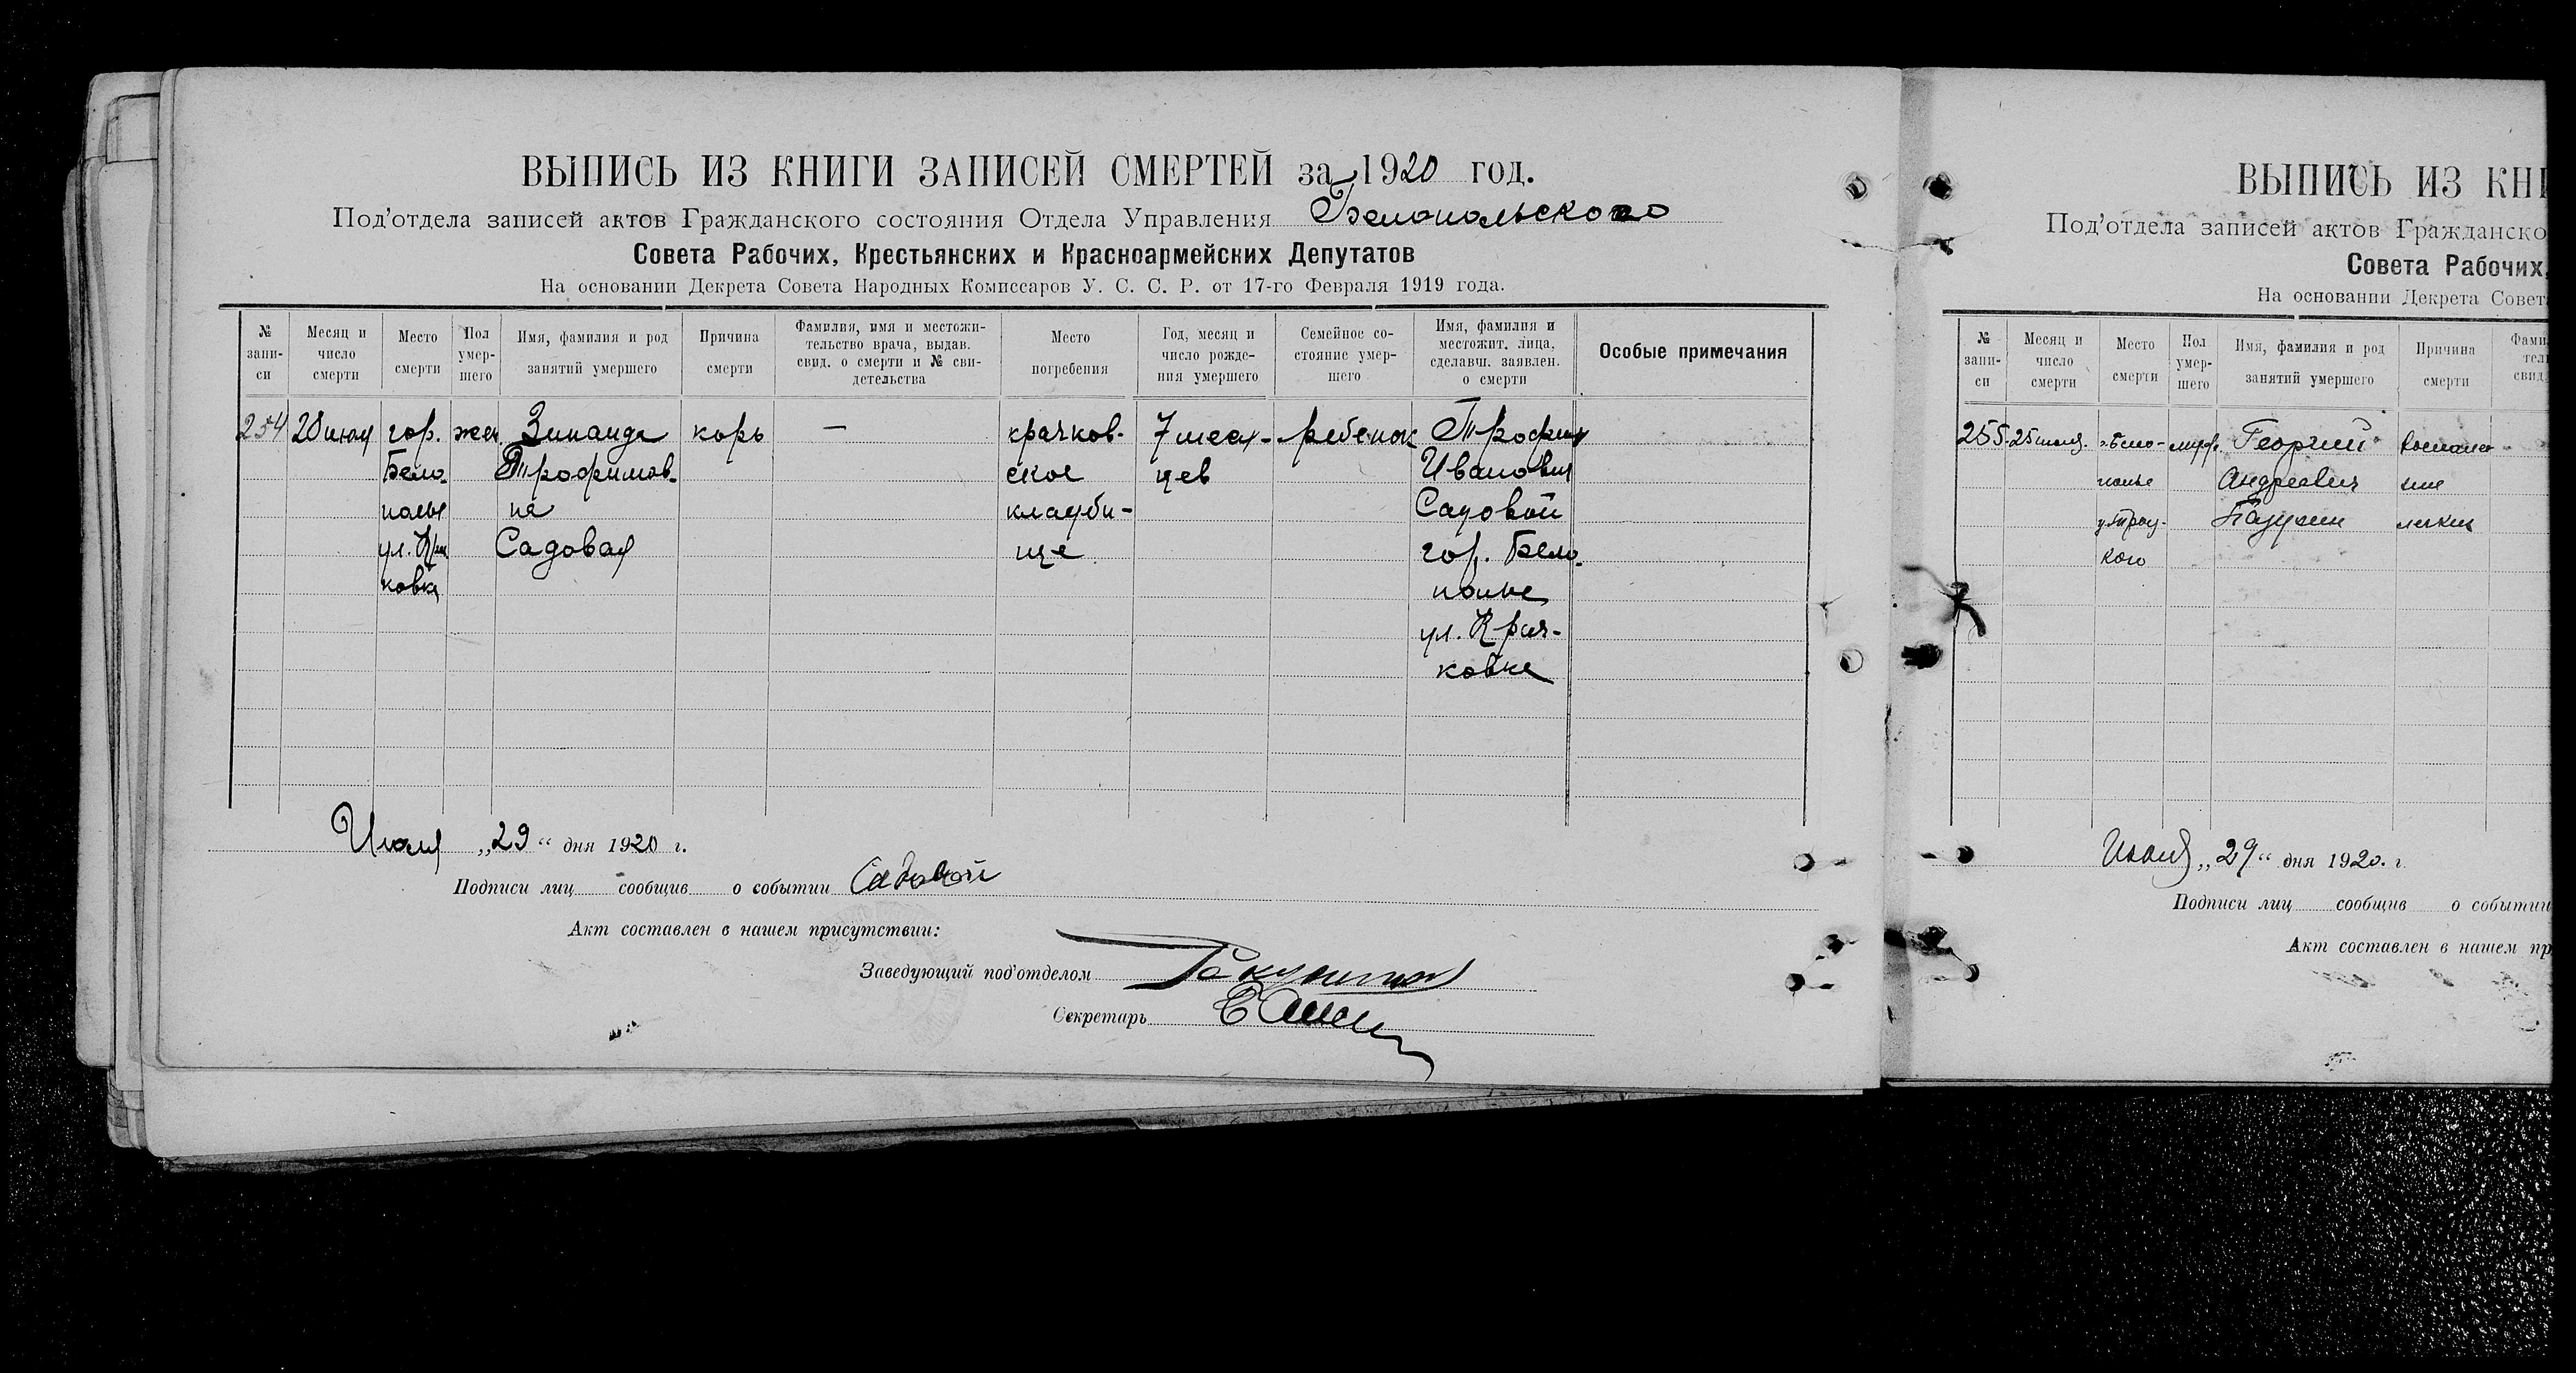 ВЫПИСЬ ИЗ КНИГИ ЗАПИСЕЙ СМЕРТЕЙ за 1920 год.
Под'отдела записей актов Гражданского состояния Отдела Управления Белопольского
Совета Рабочих, Крестьянских и Красноармейских Депутатов
На основании Декрета Совета Народных Комиссаров У. С. С. Р. от 17-го Февраля 1919 года.
№ запи- си
Месяц и число смерти
Место смерти
Пол умер- шего
Имя, фамилия и род занятий умершего
Причина смерти
Фамилия, имя и местожи- тельство врача, выдав. свид. о смерти и № сви- детельства
Место погребения
Год, месяц и число рожде- ния умершего
Семейное со- стояние умер- шего
Имя, фамилия и местожит. лица, сделавш. заявлен. о смерти
Особые примечания
254 28 июля гор. жен. Зинаида корь — крачков- 7 меся- ребенок Трофим
Бело- Трофимов- ское цев Иванович
полье на кладби- Садовой
ул. Садовая ще гор. Бело-
ковка полье
ул. Крач-
ковка
Июля „29“ дня 1920 г.
Подписи лиц сообщив о событии Садовой
Акт составлен в нашем присутствии:
Заведующий под'отделом
Секретарь
ВЫПИСЬ ИЗ КНИ
Под'отдела записей актов Гражданско
Совета Рабочих,
На основании Декрета Совет
№ запи- си
Месяц и число смерти
Место смерти
Пол умер- шего
Имя, фамилия и род занятий умершего
Причина смерти
Фами тел свид.
255 25 июля г. Бело- муж. Георгий воспале-
полье Андреевич ние
у. Троц- легких
кого
Июля „29“ дня 1920. г.
Подписи лиц сообщив о событии
Акт составлен в нашем пр